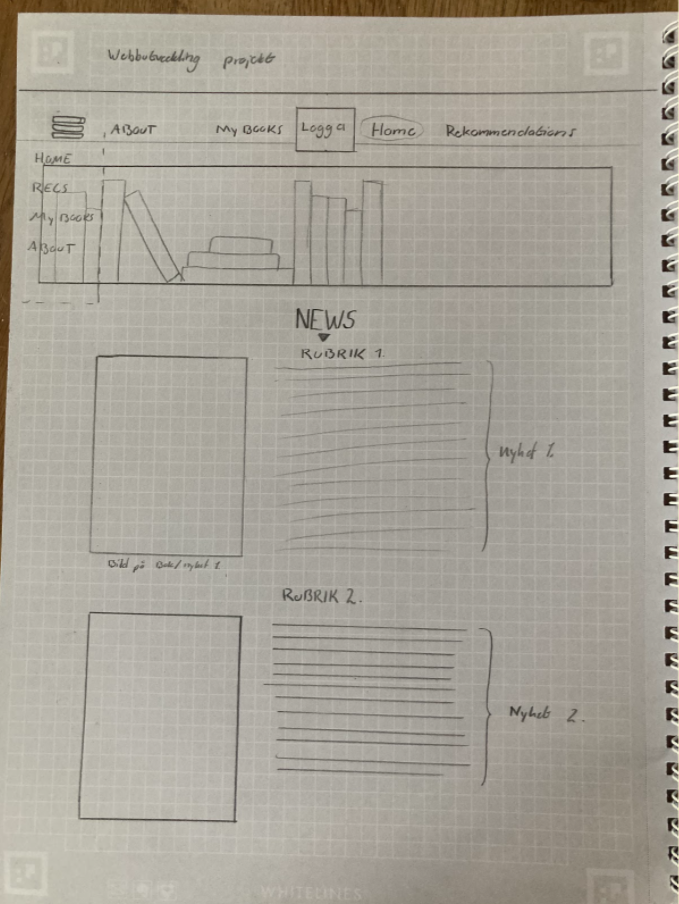 Webbutveckling projekt
ABOUT My BOOKS Logga Home Rekommendations
HOME
RECS
My Books
ABOUT
NEWS
RUBRIK 1.
Nyhet 1.
Bild på Bok/nyhet 1
RUBRIK 2.
Nyhet 2.
WHITELINES